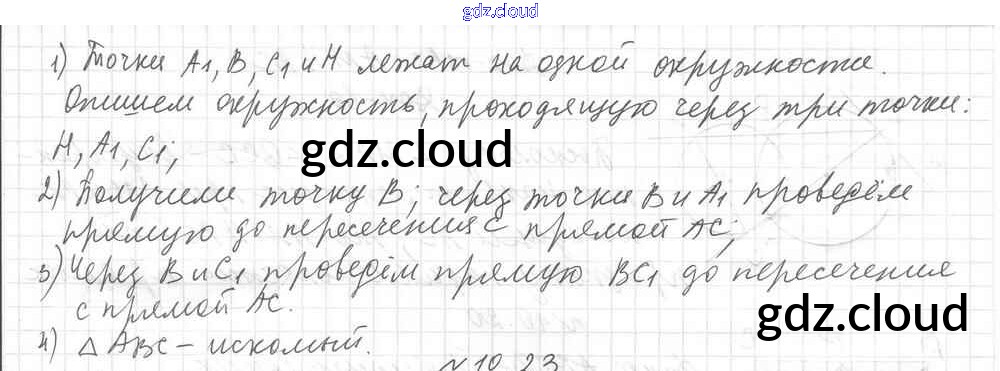 gdz.cloud
1) Точки A1, B, C1 и H лежат на одной окружности.
Опишем окружность, проходящую через три точки:
H, A1, C1;
gdz.cloud
2) Получили точку B; через точки B и A1 проведём
прямую до пересечения с прямой AC;
3) Через B и C1 проведём прямую BC1 до пересечения
с прямой AC.
gdz.cloud
4) △ABC – искомый.
№10.23